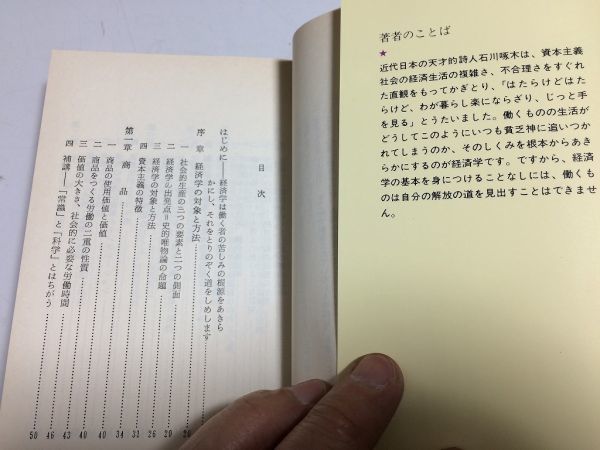 著者のことば
★
近代日本の天才的詩人石川啄木は、資本主義
社会の経済生活の複雑さ、不合理さをすぐれ
た直観をもってかぎとり、「はたらけどはた
らけど、わが暮らし楽にならざり、じっと手
を見る」とうたいました。働くものの生活が
どうしてこのようにいつも貧乏神に追いつか
れてしまうのか、そのしくみを根本からあき
らかにするのが経済学です。ですから、経済
学の基本を身につけることなしには、働くも
のは自分の解放の道を見出すことはできませ
ん。
目次
はじめに——経済学は働く者の苦しみの根源をあきら
かにし、それをとりのぞく道をしめします
序章 経済学の対象と方法
一 社会的生産の三つの要素と二つの側面
二 経済学の出発点=史的唯物論の命題
三 経済学の対象と方法
四 資本主義の特徴 32
第一章 商品 34
一 商品の使用価値と価値 40
二 商品をつくる労働の二重の性質 40
三 価値の大きさ、社会的に必要な労働時間 43
四 補講——「常識」と「科学」とはちがう 46
50